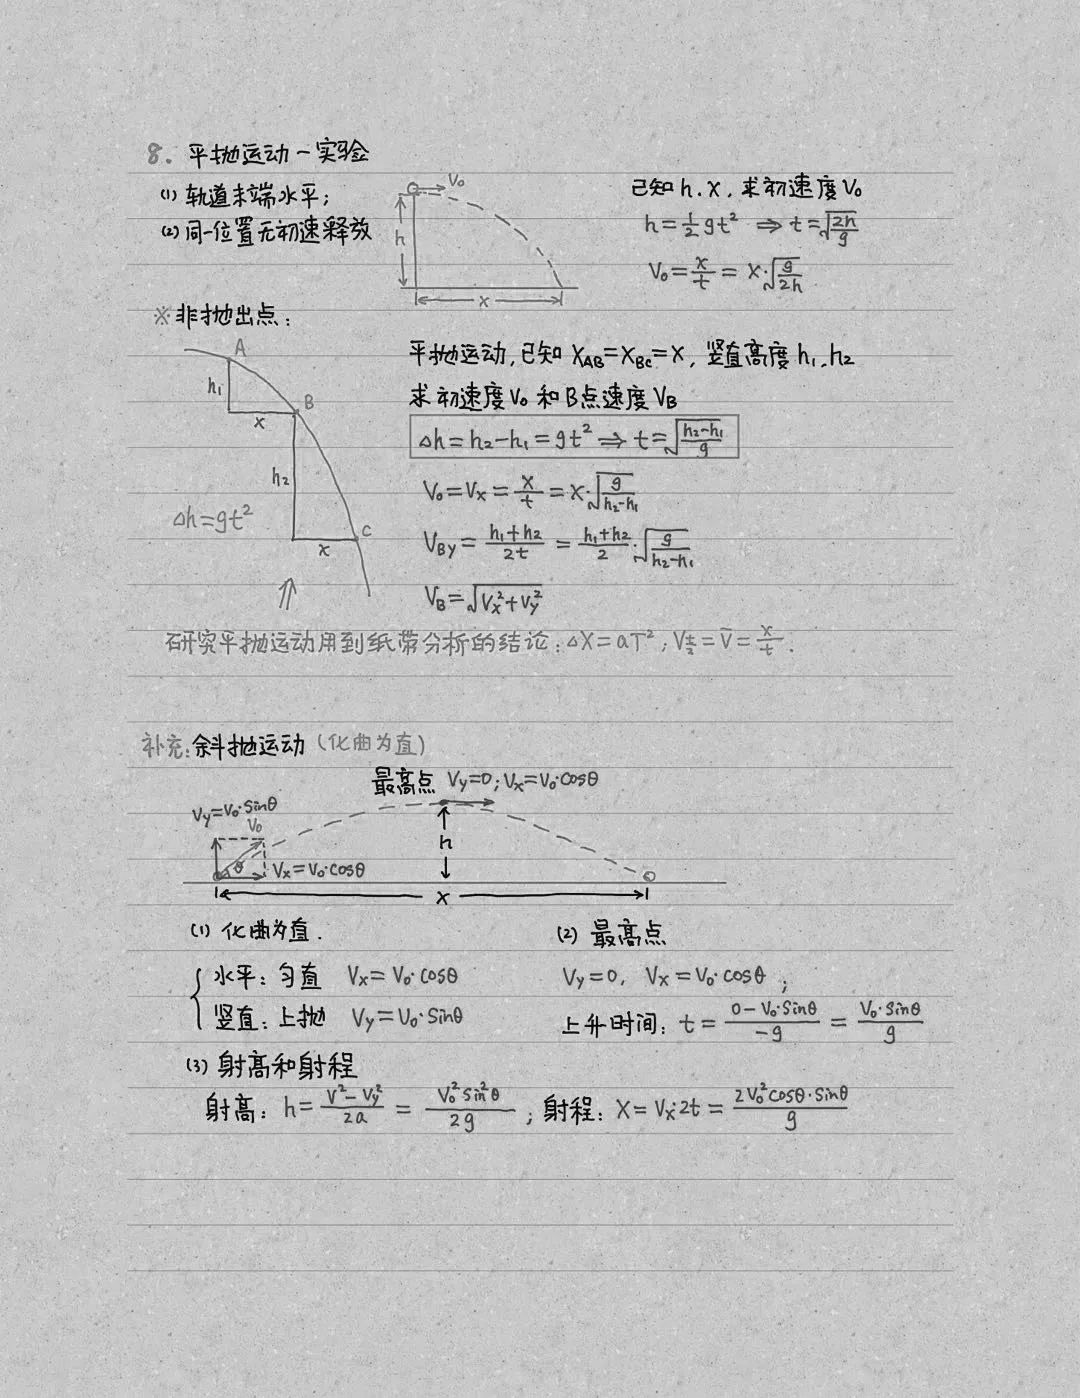 8. 平抛运动—实验
(1) 轨道末端水平;
(2) 同一位置无初速释放
V₀
h
x
已知 h、x, 求初速度V₀
h=½gt² ⇒ t=√(2h/g)
V₀=x/t=x·√(g/2h)
※非抛出点:
A
h₁
x
B
h₂
x
C
Δh=gt²
平抛运动,已知 X_AB=X_BC=x, 竖直高度 h₁、h₂
求初速度V₀ 和B点速度V_B
Δh=h₂-h₁=gt² ⇒ t=√((h₂-h₁)/g)
V₀=Vx=x/t=x·√(g/(h₂-h₁))
V_By=(h₁+h₂)/2t=(h₁+h₂)/2·√(g/(h₂-h₁))
V_B=√(Vx²+Vy²)
研究平抛运动用到纸带分析的结论:ΔX=aT²; V_(t/2)=V̄=x/t.
补充:斜抛运动(化曲为直)
最高点 Vy=0;Vx=V₀·cosθ
Vy=V₀·sinθ
V₀
θ
Vx=V₀·cosθ
h
x
(1) 化曲为直.
水平:匀直 Vx=V₀·cosθ
竖直:上抛 Vy=V₀·sinθ
(2) 最高点
Vy=0, Vx=V₀·cosθ;
上升时间: t=(0-V₀·sinθ)/-g=V₀·sinθ/g
(3) 射高和射程
射高: h=(V²-Vy²)/2a=V₀²sin²θ/2g; 射程: X=Vx·2t=2V₀²cosθ·sinθ/g